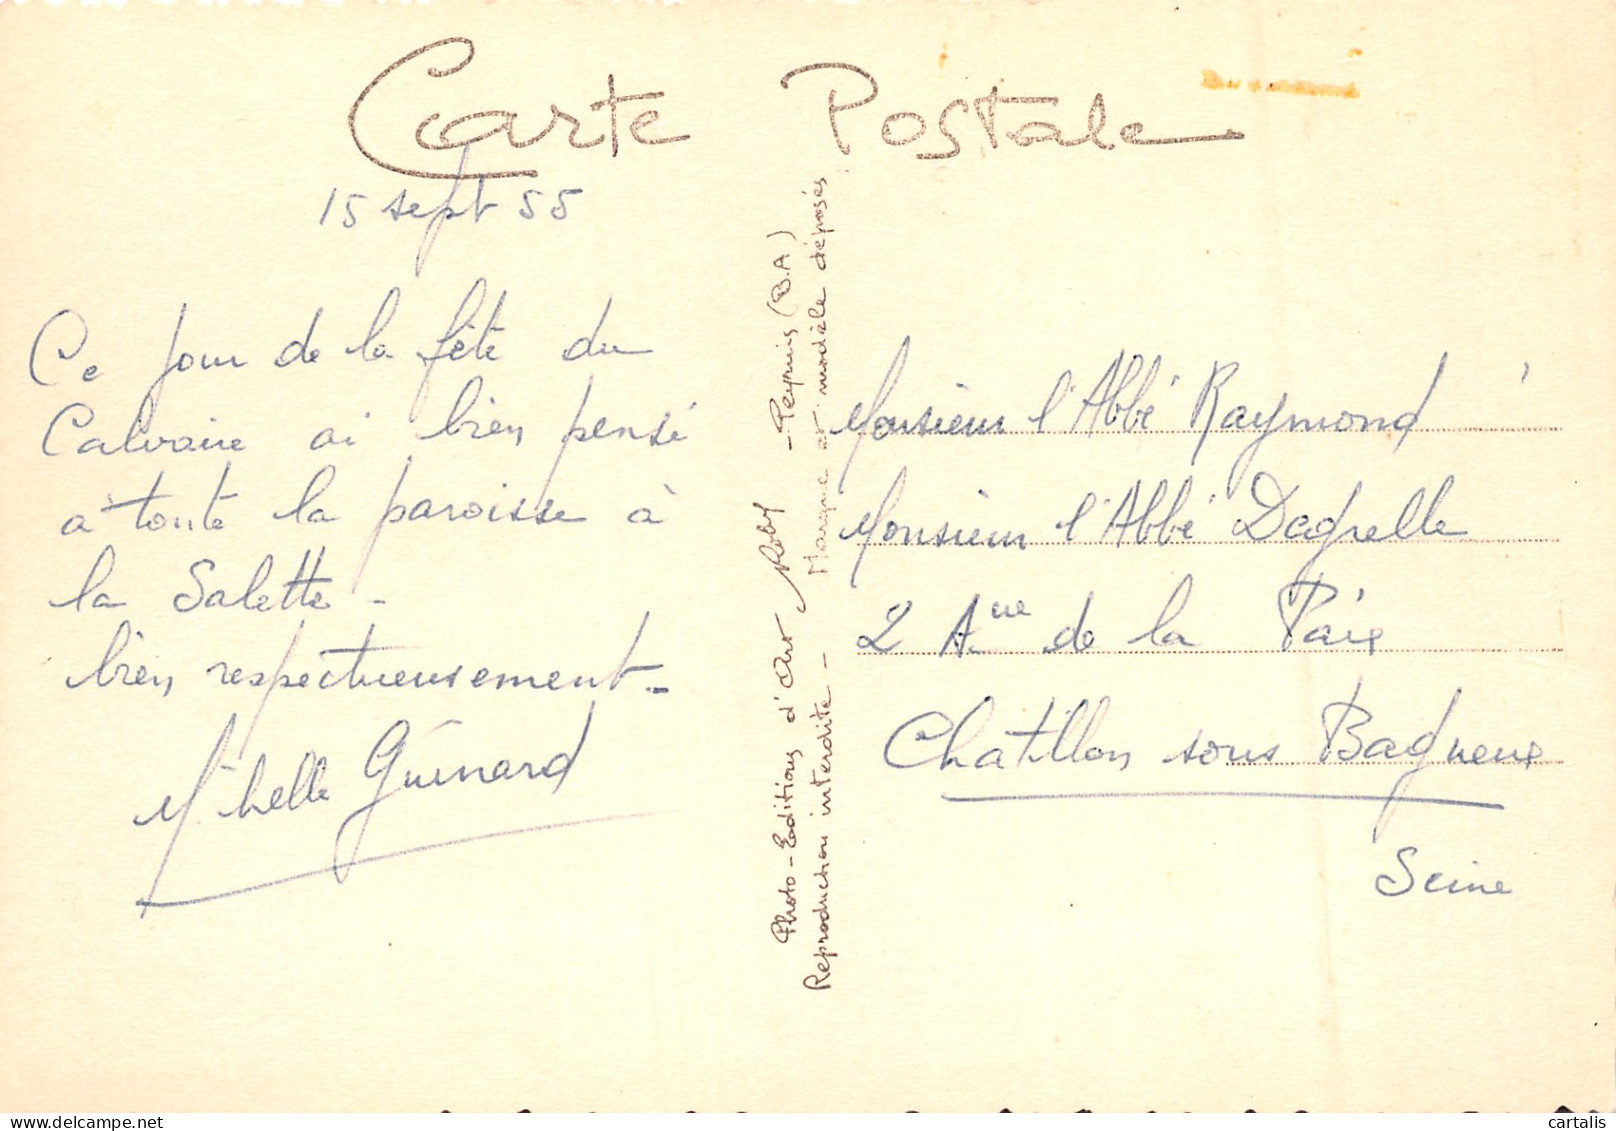 Carte Postale
15 sept 55
Ce jour de la fête du
Calvaire ai bien pensé
à toute la paroisse à
la Salette -
bien respectueusement -
Michelle Guinard
Photo - Editions d'Art Roby - Peyruis (B.A)
Reproduction interdite - Marque et modèle déposés
Monsieur l'Abbé Raymond
Monsieur l'Abbé Dagrelle
2 Ave de la Paix
Chatillon sous Bagneux
Seine
delcampe.net
cartalis